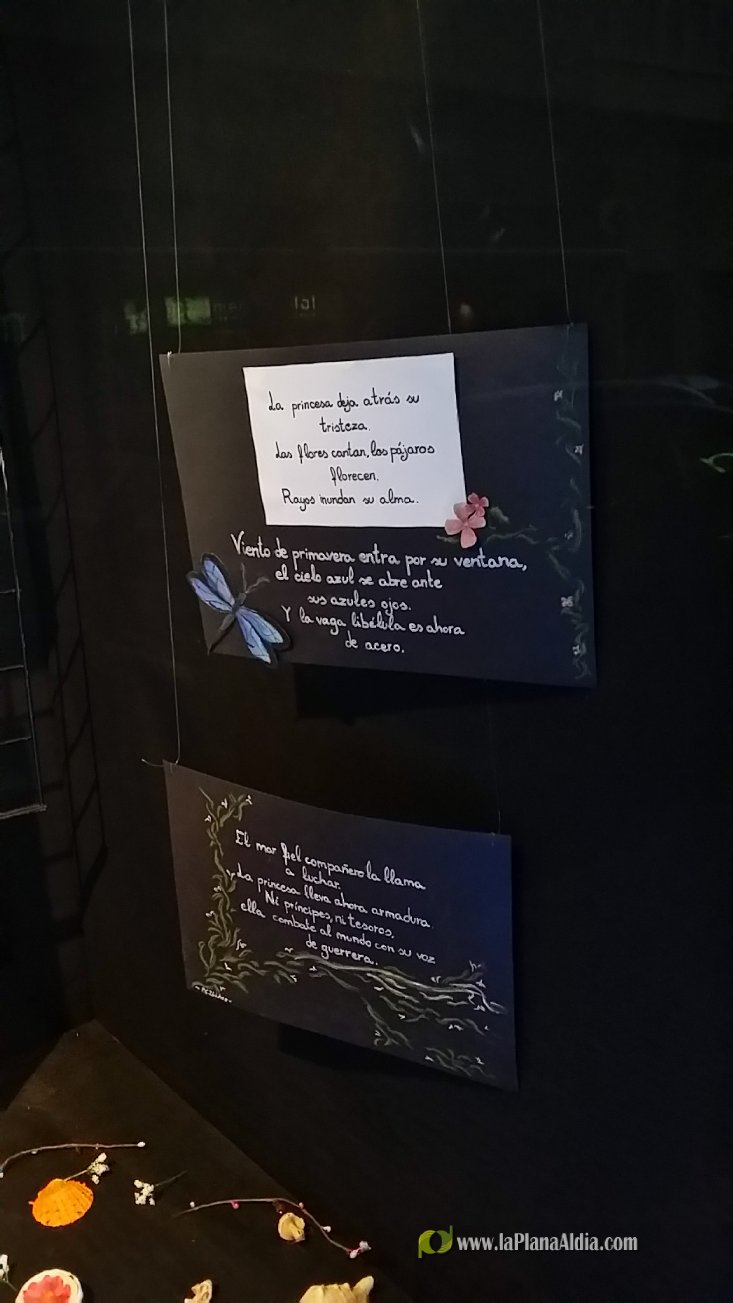 La princesa deja atrás su
tristeza.
Las flores cantan, los pájaros
florecen.
Rayos inundan su alma.
Viento de primavera entra por su ventana,
el cielo azul se abre ante
sus azules ojos.
Y la vaga libélula es ahora
de acero.
El mar fiel compañero la llama
a luchar.
La princesa lleva ahora armadura
Ni príncipes, ni tesoros,
ella combate al mundo con su voz
de guerrera.
www.laPlanaAldia.com